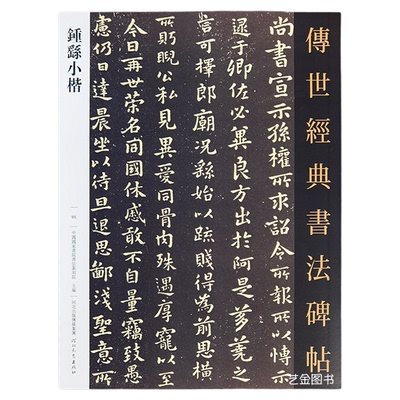 傳世經典書法碑帖
尚書宣示孫權所求詔令所報所以博示
逮于卿佐必冀良方出於阿是芻蕘之
言可擇郎廟況繇始以疏賤得為前恩橫
所盼睨公私見異愛同骨肉殊遇厚寵以至
今日再世榮名同國休慼敢不自量竊致愚
慮仍日達晨坐以待旦退思鄙淺聖意
鍾繇小楷
主編
艺金图书